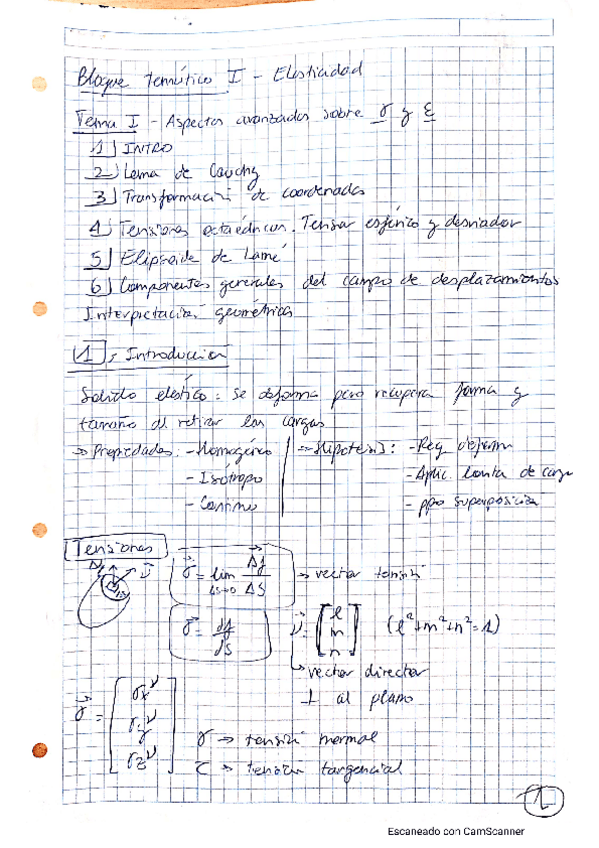 Bloque temático I - Elasticidad
Tema I - Aspectos avanzados sobre σ y ε
1) INTRO
2) Lema de Cauchy
3) Transformación de coordenadas
4) Tensiones octaédricas. Tensor esférico y desviador
5) Elipsoide de Lamé
6) Componentes generales del campo de desplazamientos
Interpretación geométrica
1, Introduccion
Solido elástico: se deforma pero recupera forma y
tamaño al retirar las cargas
→ Propiedades: - Homogéneo → Hipotesis: - Peq deform
- Isótropo - Aplic. lenta de carga
- Continuo - ppo superposición
Tensiones
Δf ν ΔS
σ = lim ΔS→0 Δf/ΔS → vector tensión
σ = df/dS ν = [l m n] (l²+m²+n²=1)
→ vector director
⊥ al plano
σ = [σx^ν σy^ν σz^ν]
σ → tensión normal
τ → tension tangencial
1
Escaneado con CamScanner